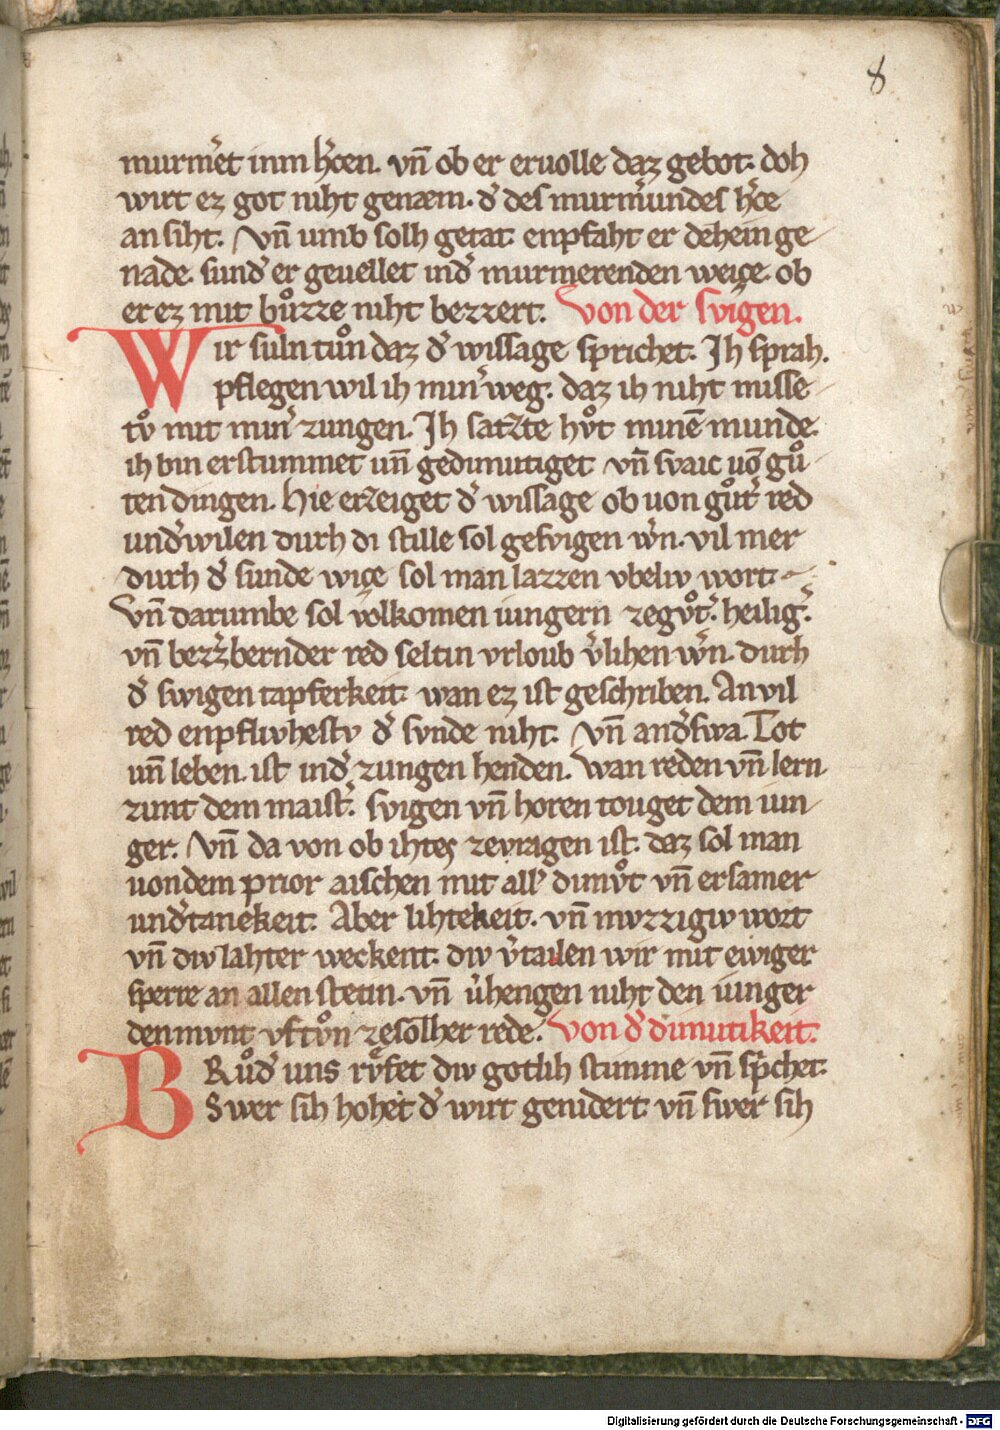 8
murm̾et inm h̾cen. vn̄ ob er eruolle daz gebot. doh
wirt ez got niht genæm. d̾ des murm̾undes h̾ce
an siht. Vn̄ umb solh getat enpfaht er dehein ge
nade. sund̾ er geuellet ind̾ murmerenden weige. ob
er ez mit bůzze niht bezzert. Von der svigen.
Wir suln tůn daz d̾ wissage sprichet. Jh sprah.
pflegen wil ih min̾ weg. daz ih niht misse
tv̊ mit min̾ zungen. Jh satzte hv̊t minē munde.
ih bin erstummet un̄ gedimutiget vn̄ svaic uō gů
ten dingen. Hie erzeiget d̾ wissage ob uon gůt̾ red
und̾wilen durh di stille sol gesvigen w̾n. vil mer
durh d̾ sunde wiçe sol man lazzen vbeliv wort.
Vn̄ darumbe sol volkomen iungern zegv̊t̾. heilig̾.
vn̄ bezz̾bernder red seltin vrloub v̾lihen w̾n. durh
d̾ swigen tapferkeit. wan ez ist geschriben. An vil
red enpflivhestv d̾ svnde niht. Vn̄ and̾swa. Tot
un̄ leben. ist ind̾ zungen henden. Wan reden vn̄ lern
zimt dem maist̾. svigen vn̄ horen touget dem iun
ger. Vn̄ da von ob ihtes zevragen ist. daz sol man
uondem prior aischen mit all̾ dimv̊t vn̄ ersamer
und̾tanekeit. Aber lihtekeit. vn̄ mvzzigiv wort
vn̄ div lahter weckent. div v̾tailen wir mit ewiger
sperre an allen stetin. vn̄ v̾hengen niht den iunger
den mvnt vftv̊n zesolher rede. Von d̾ dimutikeit.
Bruod̾ uns rv̊fet div gotlih stimme vn̄ sp̾chet.
Swer sih hohet d̾ wirt genidert vn̄ swer sih
Digitalisierung gefördert durch die Deutsche Forschungsgemeinschaft - DFG